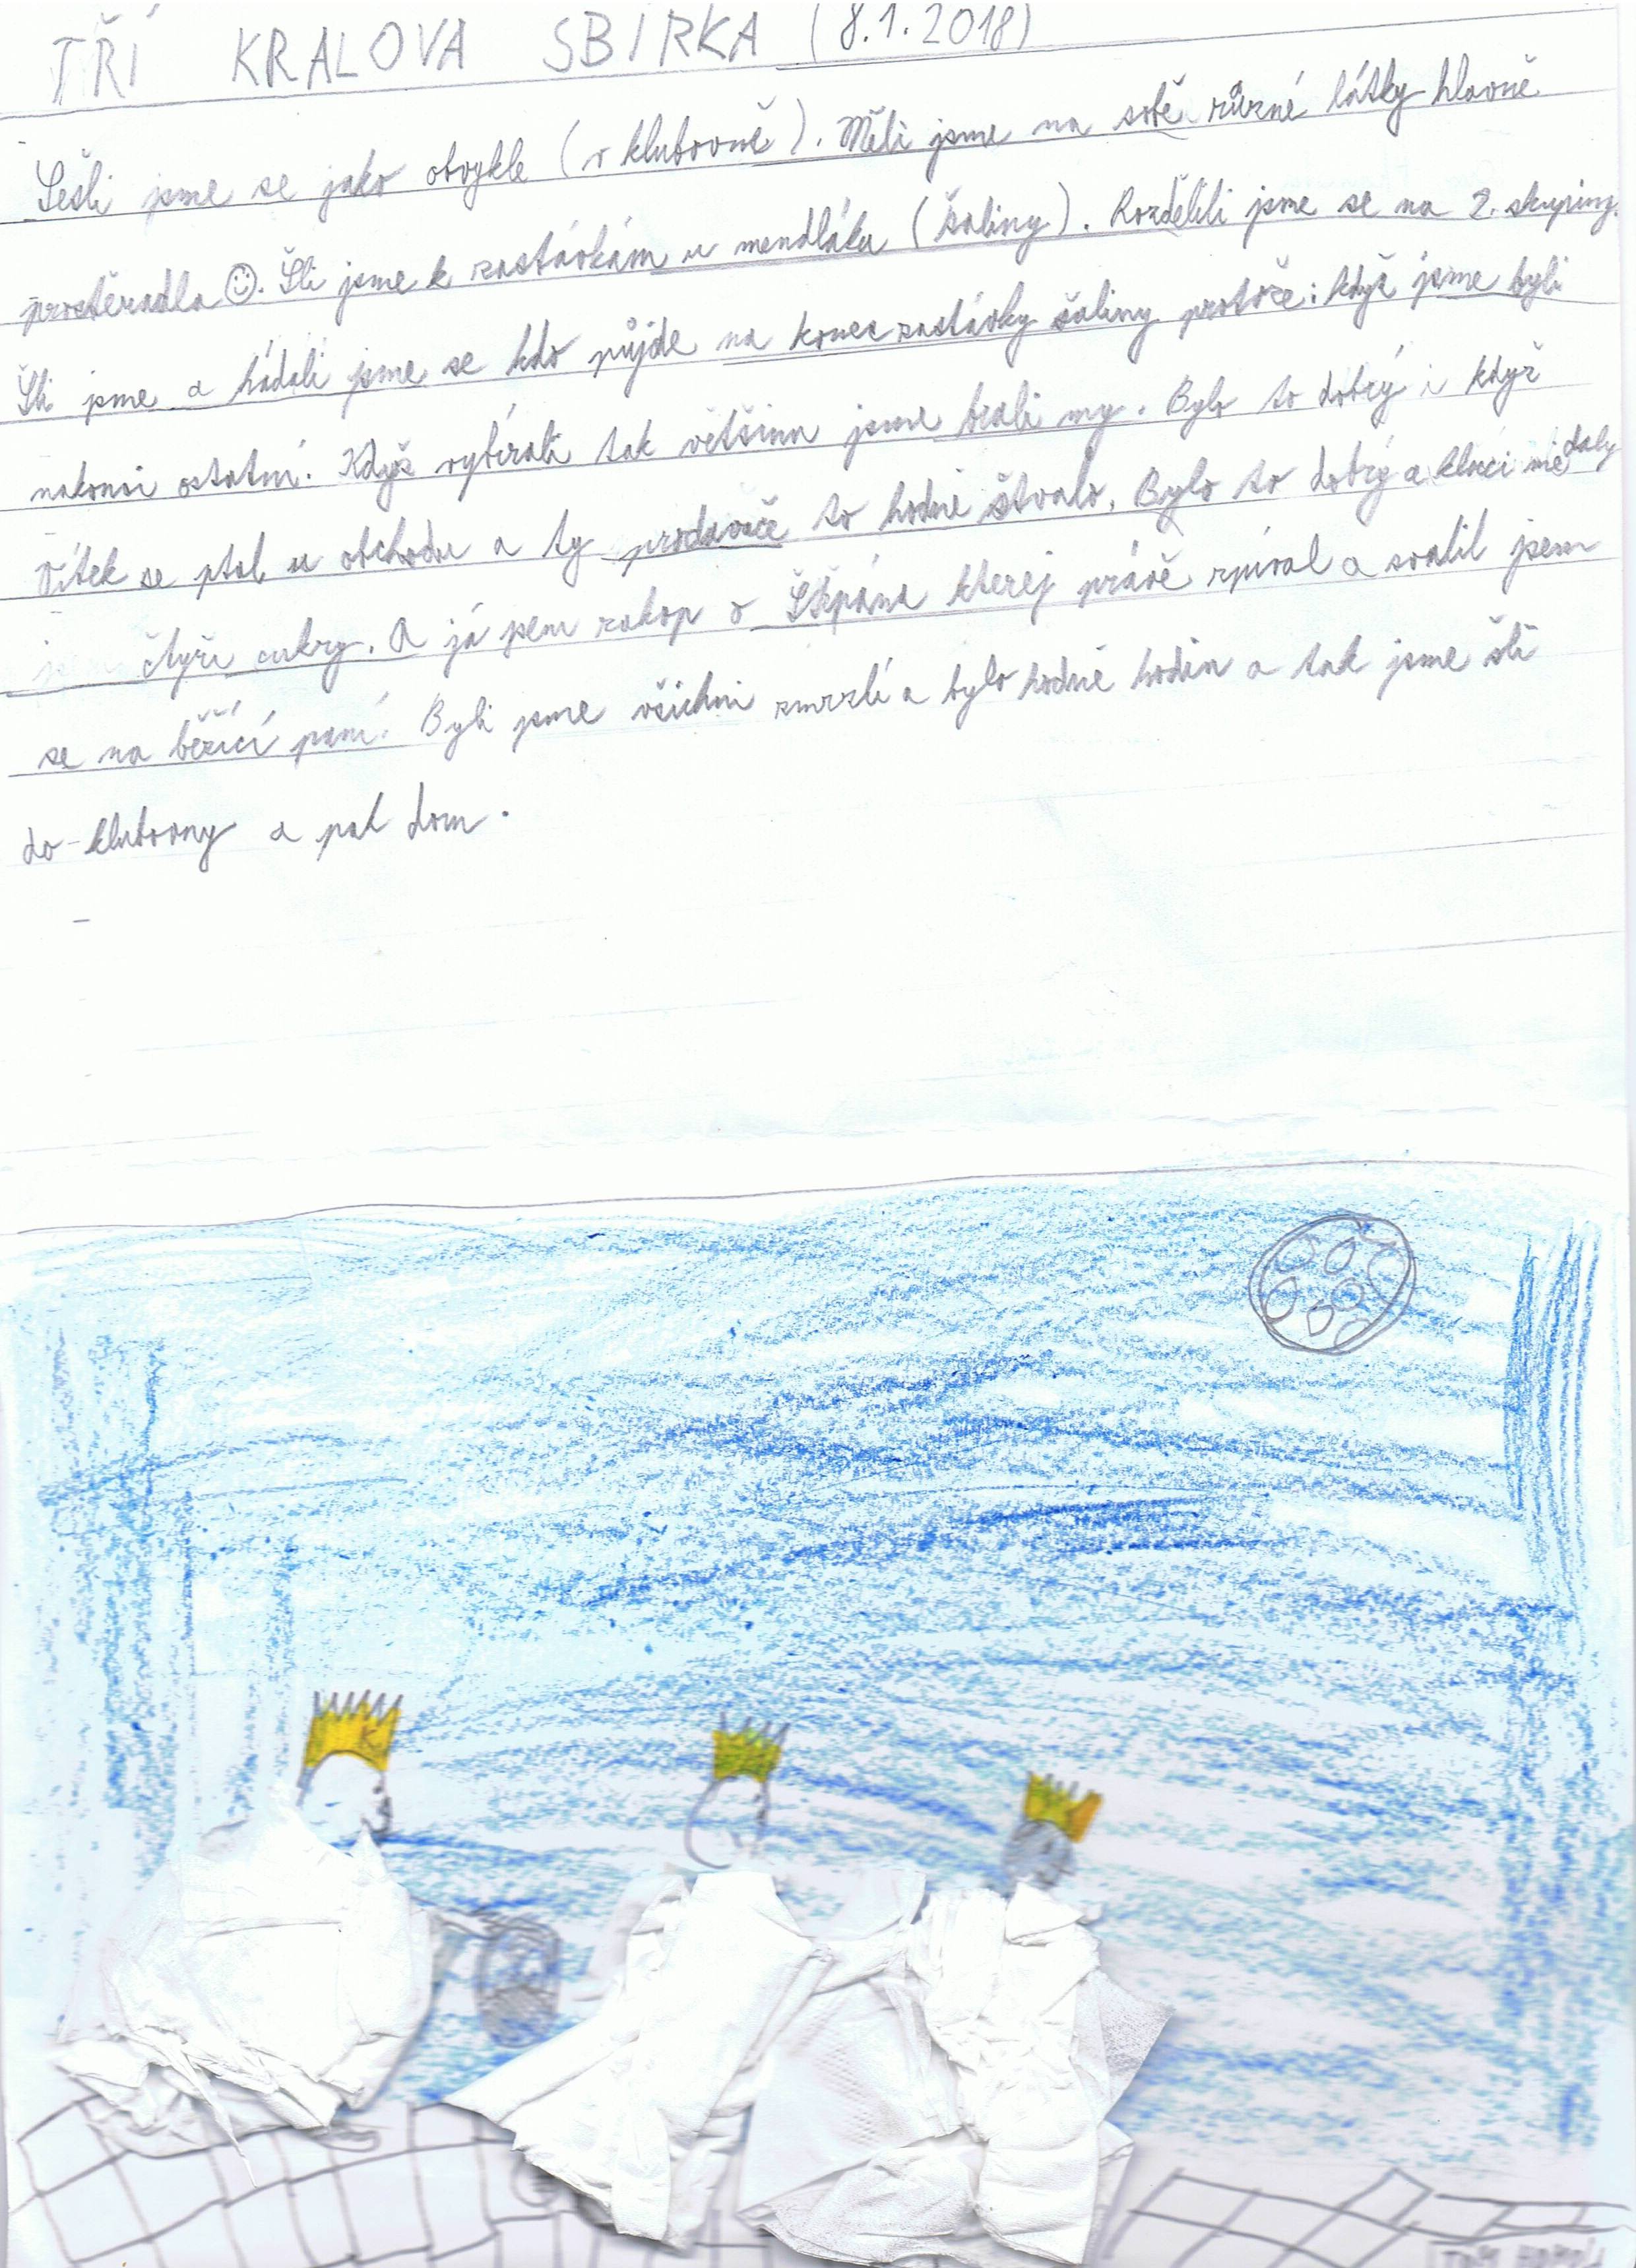 TŘÍ KRALOVA SBÍRKA (8.1.2018)
Sešli jsme se jako obvykle (v klubovně). Měli jsme na sobě různé látky hlavně
prostěradla ☺. Šli jsme k zastávkám u mendláku (šaliny). Rozdělili jsme se na 2. skupiny.
Šli jsme a hádali jsme se kdo půjde na konec zastávky šaliny protože: když jsme byli
nakonci ostatní. Když vybírali tak většinu jsme brali my. Bylo to dobrý i když
Vítek se ptal u obchodu a ty prodavače to hodně štvalo. Bylo to dobrý a kluci mě daly
čtyři cukry. A já jsem zakop o Štěpána kterej právě zpíval a svalil jsem
se na běžící paní. Byli jsme všichni zmrzlí a bylo hodně hodin a tak jsme šli
do klubovny a pak dom.
K